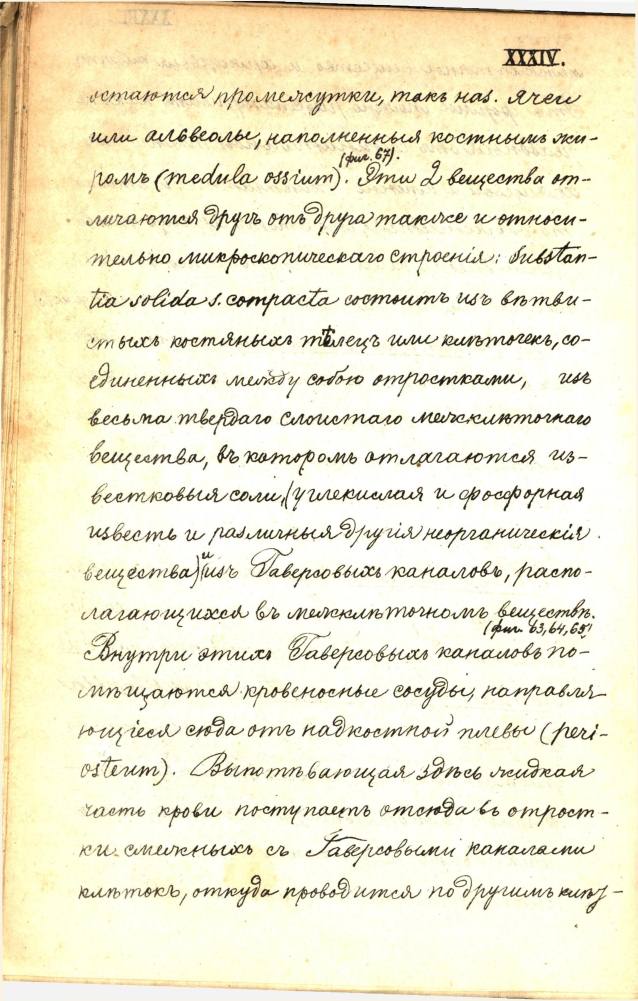 XXXIV.
остаются промежутки, такъ наз. ячеи
или альвеолы, наполненныя костнымъ жи-
(фиг. 67).
ромъ (medula ossium). Эти 2 вещества от-
личаются другъ отъ друга также и относи-
тельно микроскопическаго строенія: Substan-
tia solida s. compacta состоитъ изъ вѣтви-
стыхъ костяныхъ тѣлецъ или клѣточекъ, со-
единенныхъ между собою отростками, изъ
весьма твердаго слоистаго межклѣточнаго
вещества, въ которомъ отлагаются из-
вестковыя соли, (углекислая и фосфорная
известь и различныя другія неорганическія
вещества) и изъ Гаверсовыхъ каналовъ, распо-
лагающихся въ межклѣточномъ веществѣ.
(фиг. 63, 64, 65)
Внутри этихъ Гаверсовыхъ каналовъ по-
мѣщаются кровеносные сосуды, направля-
ющіеся сюда отъ надкостной плевы (peri-
osteum). Выпотѣвающая здѣсь жидкая
часть крови поступаетъ отсюда въ отрост-
ки смежныхъ съ Гаверсовыми каналами
клѣтокъ, откуда проводится по другимъ клѣт-